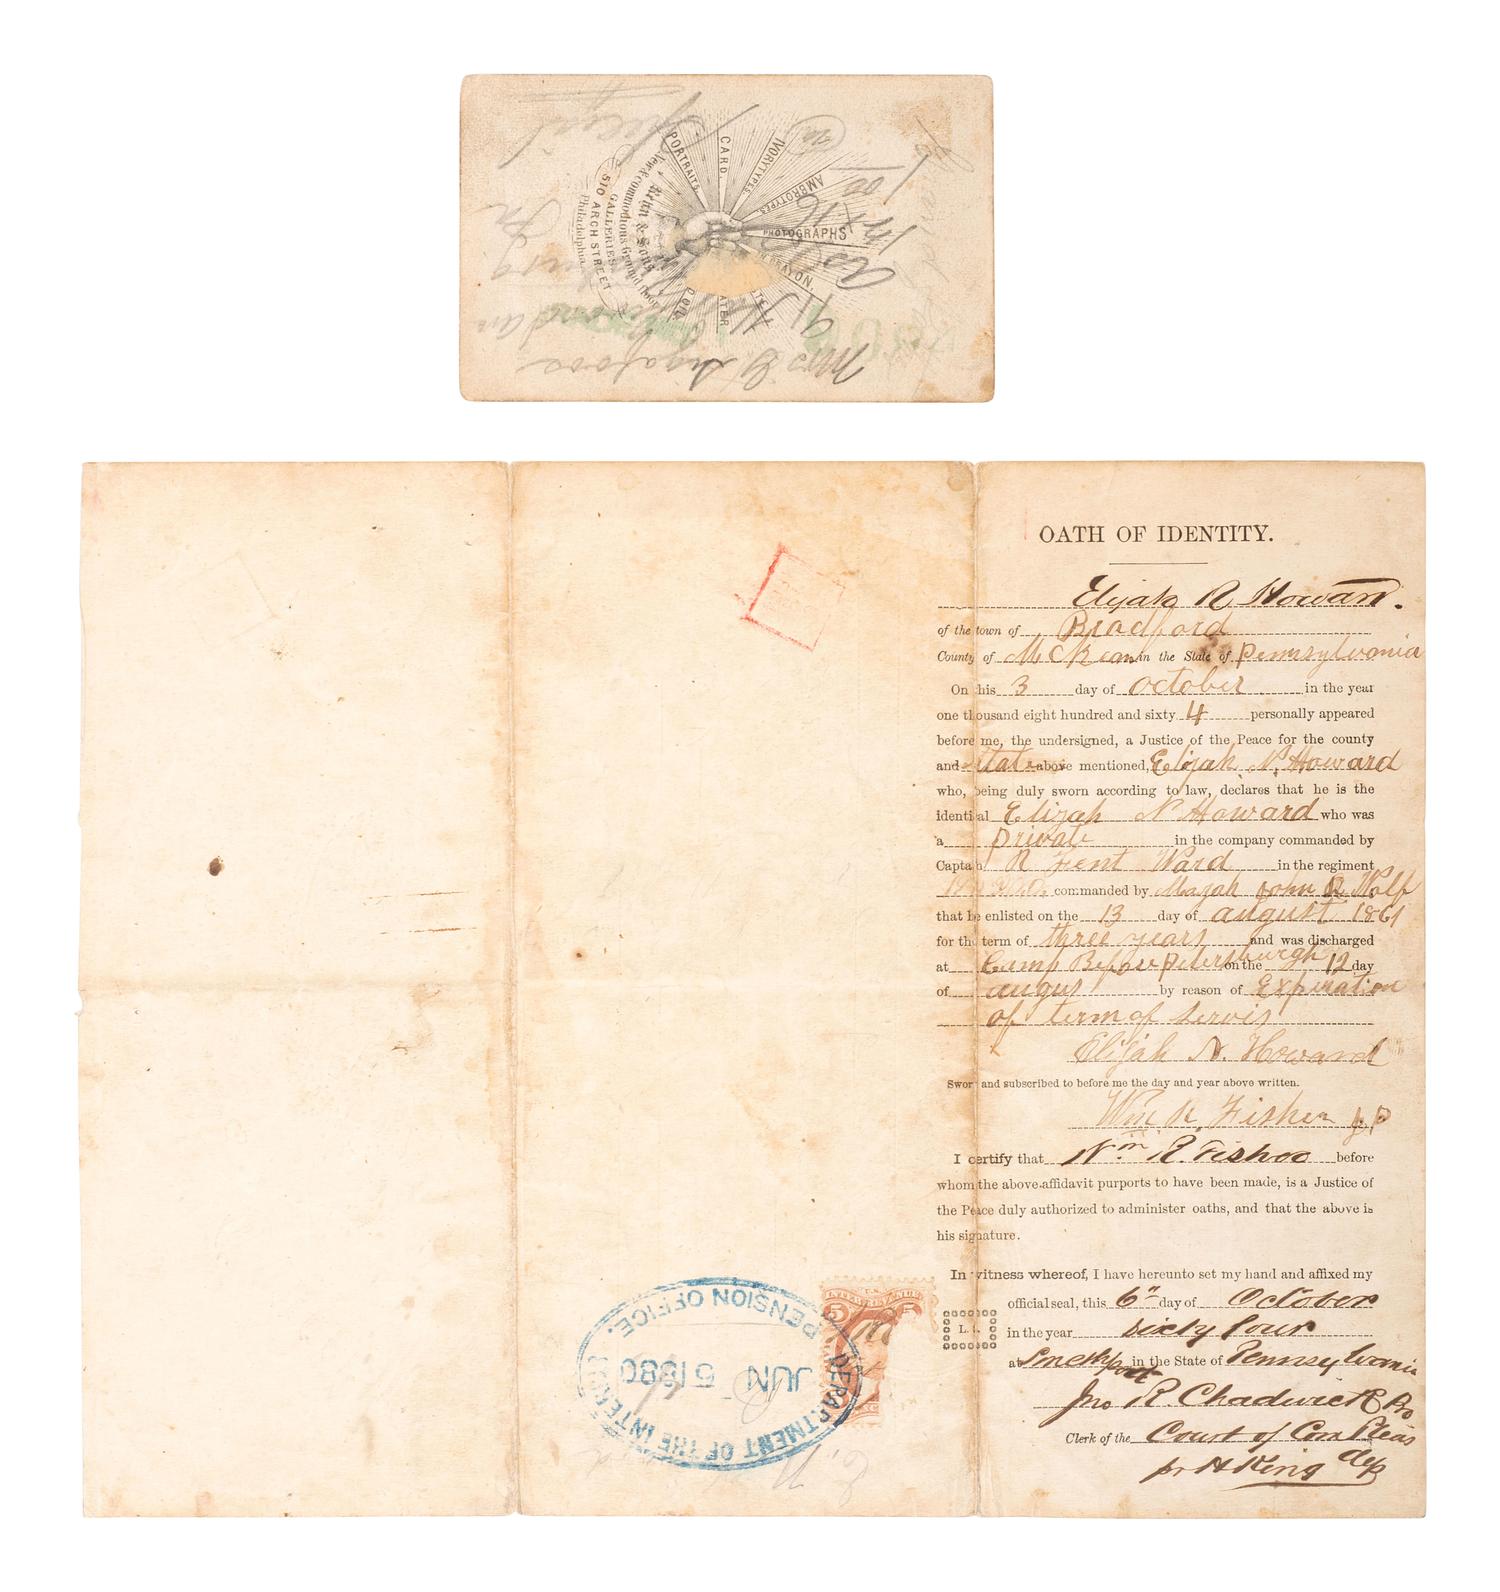 PORTRAITS.
CARD.
IVORYTYPES.
AMBROTYPES.
PHOTOGRAPHS
CRAYON,
OIL.
New & commodious Ground floor
GALLERIES.
510 ARCH STREET
Philadelphia.
Special
OATH OF IDENTITY.
Elijah R Howard.
of the town of Bradford
County of McKean in the State of Pennsylvania
On this 3 day of October in the year
one thousand eight hundred and sixty 4 personally appeared
before me, the undersigned, a Justice of the Peace for the county
and State above mentioned, Elijah N. Howard
who, being duly sworn according to law, declares that he is the
identical Elijah N Howard who was
a private in the company commanded by
Captain R Fent Ward in the regiment
commanded by Majah John R Wolf
that he enlisted on the 13 day of august 1861
for the term of three years and was discharged
at Camp Before petersburgh on the 12 day
of augus by reason of Expiration
of term of servis
Elijah N. Howard
Sworn and subscribed to before me the day and year above written.
Wm. R. Fisher J P
I certify that Wm R. Fisher before
whom the above affidavit purports to have been made, is a Justice of
the Peace duly authorized to administer oaths, and that the above is
his signature.
In witness whereof, I have hereunto set my hand and affixed my
official seal, this 6th day of October
L. S.
in the year sixty four
at Smethport in the State of Pennsylvania
Jno R. Chadwick Pro
Clerk of the Court of Com Pleas
pr H King dep
U.S. INTER. REVENUE
5 5
DEPARTMENT OF THE INTERIOR
JUN 5 1880
PENSION OFFICE.